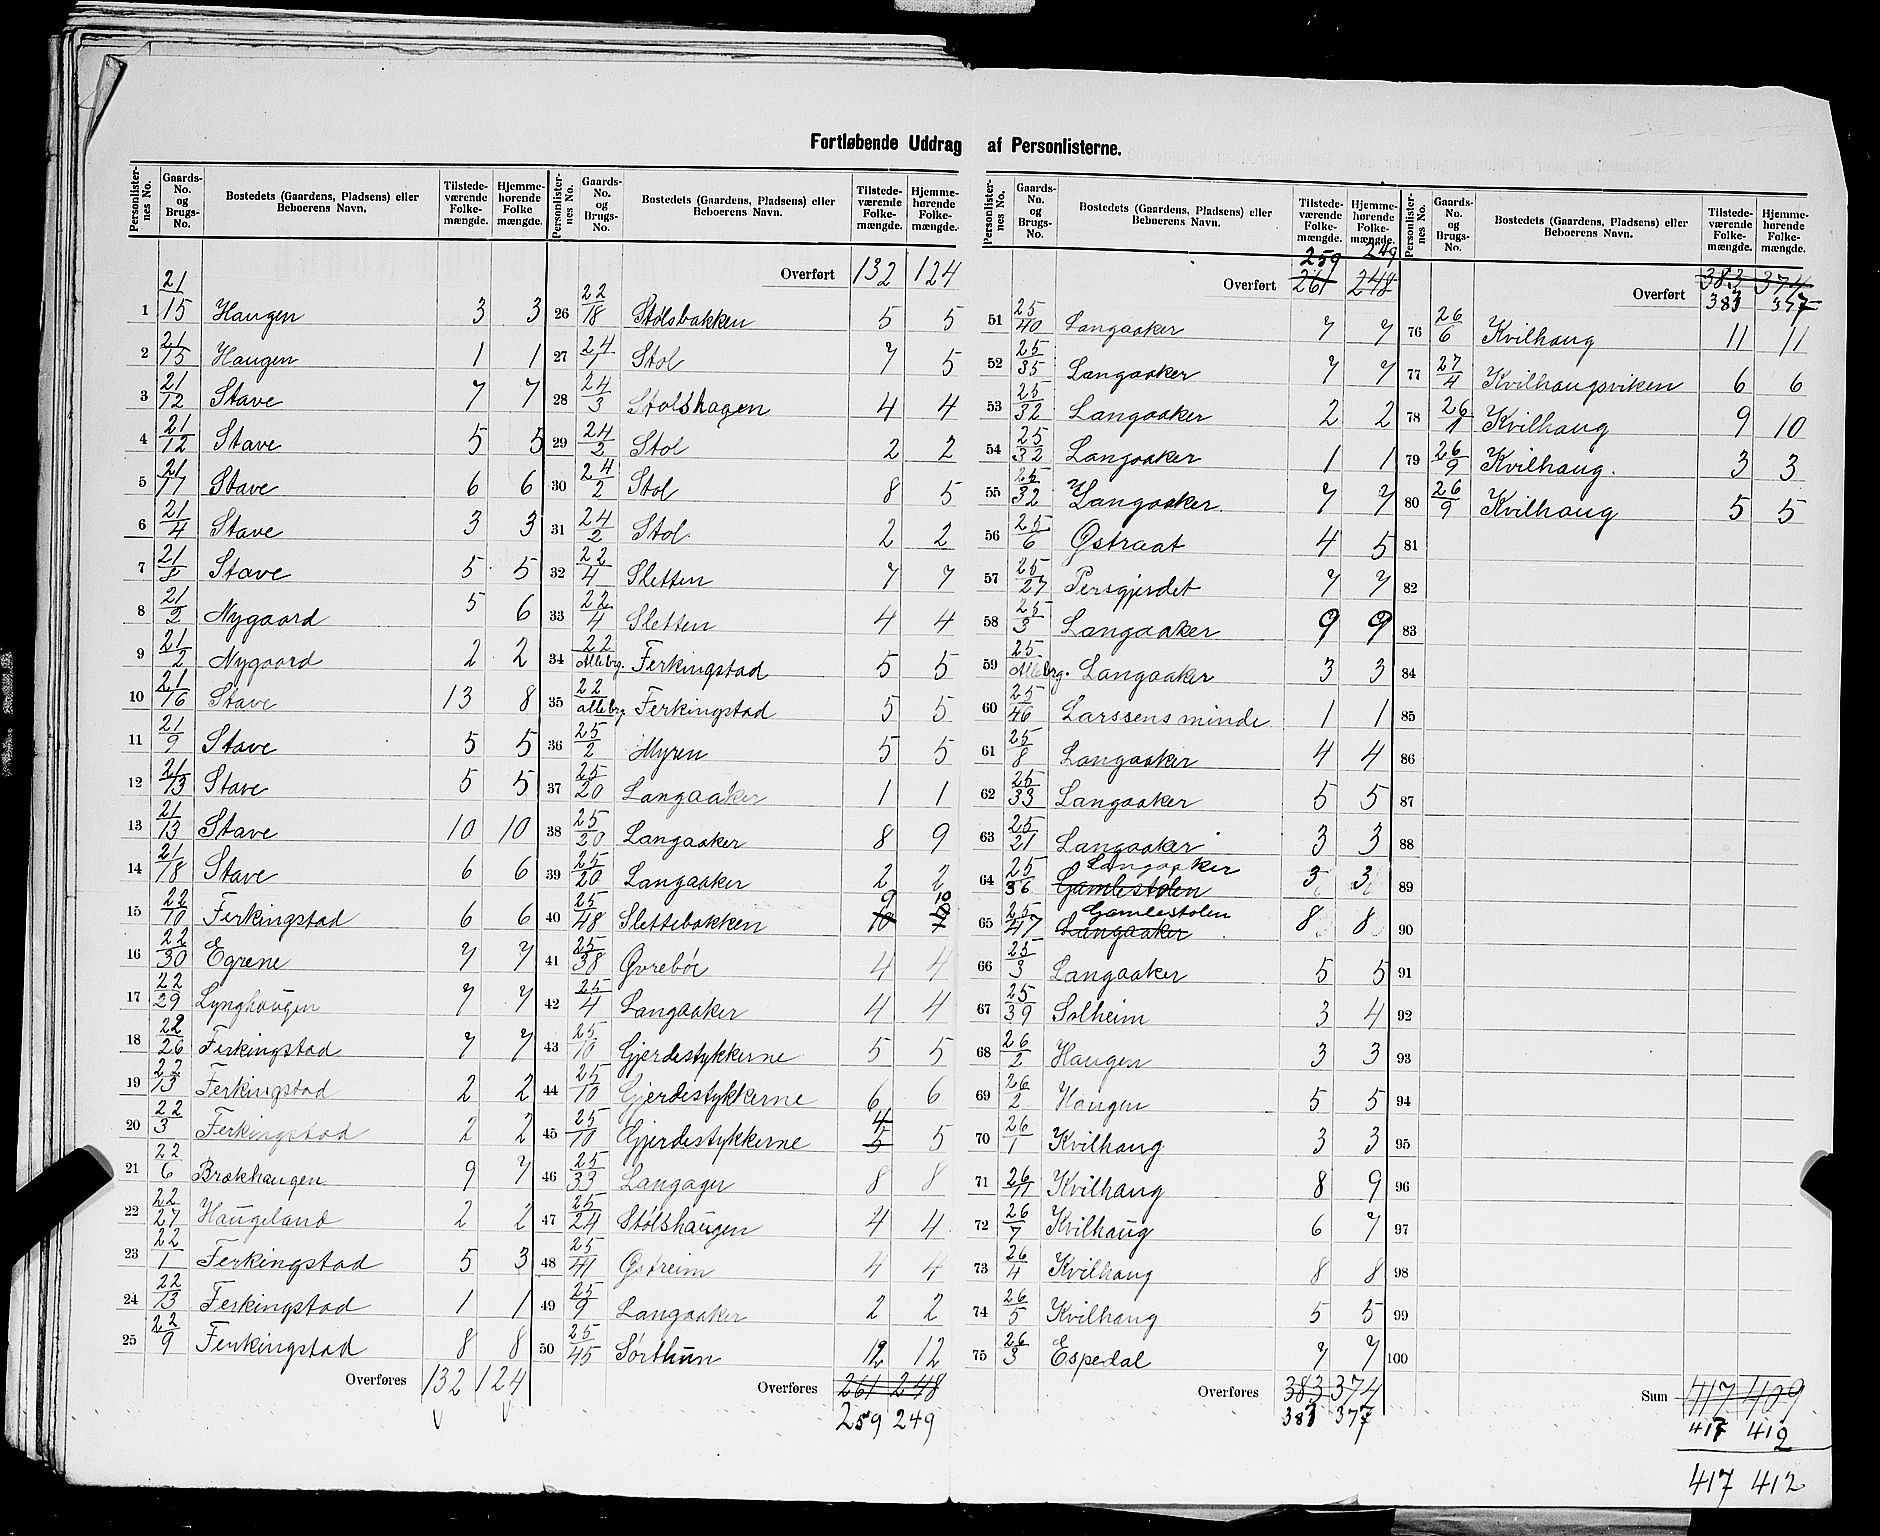 Fortløbende Uddrag af Personlisterne.
Personlisternes No. Gaards-No. og Brugs-No. Bostedets (Gaardens, Pladsens) eller Beboerens Navn. Tilstedeværende Folkemængde. Hjemmehørende Folkemængde.
1 21/15 Haugen 3 3
2 21/15 Haugen 1 1
3 21/12 Stave 7 7
4 21/12 Stave 5 5
5 21/17 Stave 6 6
6 21/4 Stave 3 3
7 21/8 Stave 5 5
8 21/2 Nygaard 5 6
9 21/2 Nygaard 2 2
10 21/16 Stave 13 8
11 21/9 Stave 5 5
12 21/13 Stave 5 5
13 21/13 Stave 10 10
14 21/18 Stave 6 6
15 22/10 Ferkingstad 6 6
16 22/30 Egrene 7 7
17 22/29 Lynghaugen 7 7
18 22/26 Ferkingstad 7 7
19 22/13 Ferkingstad 2 2
20 22/3 Ferkingstad 2 2
21 22/6 Brækhaugen 9 7
22 22/27 Haugeland 2 2
23 22/1 Ferkingstad 5 3
24 22/13 Ferkingstad 1 1
25 22/9 Ferkingstad 8 8
Overføres 132 124
Personlisternes No. Gaards-No. og Brugs-No. Bostedets (Gaardens, Pladsens) eller Beboerens Navn. Tilstedeværende Folkemængde. Hjemmehørende Folkemængde.
Overført 132 124
26 22/18 Stølsbakken 5 5
27 24/1 Stol 7 5
28 24/3 Stolshagen 4 4
29 24/2 Stol 2 2
30 24/2 Stol 8 5
31 24/2 Stol 2 2
32 22/4 Sletten 7 7
33 22/4 Sletten 4 4
34 22/Allebrg. Ferkingstad 5 5
35 22/allebrg Ferkingstad 5 5
36 25/2 Myren 5 5
37 25/20 Langaaker 1 1
38 25/20 Langaaker 8 9
39 25/20 Langaaker 2 2
40 25/48 Slettebakken 10 9 10
41 25/38 Øvrebøe 4 4
42 25/4 Langaaker 4 4
43 25/10 Gjerdestykkerne 5 5
44 25/10 Gjerdestykkerne 6 6
45 25/10 Gjerdestykkerne 5 4 5
46 25/33 Langager 8 8
47 25/24 Stølshaugen 4 4
48 25/41 Østreim 4 4
49 25/9 Langaaker 2 2
50 25/45 Sørthun 12 12
Overføres 261 248
259 249
Personlisternes No. Gaards-No. og Brugs-No. Bostedets (Gaardens, Pladsens) eller Beboerens Navn. Tilstedeværende Folkemængde. Hjemmehørende Folkemængde.
259 249
Overført 261 248
51 25/40 Langaaker 7 7
52 25/35 Langaaker 7 7
53 25/32 Langaaker 2 2
54 25/32 Langaaker 1 1
55 25/32 Langaaker 7 7
56 25/6 Østraat 4 5
57 25/27 Persgjerdet 7 7
58 25/3 Langaaker 9 9
59 25/Allebrg. Langaaker 3 3
60 25/46 Larssens minde 1 1
61 25/8 Langaaker 4 4
62 25/33 Langaaker 5 5
63 25/21 Langaaker 3 3
64 25/36 Gamlestolen Langaaker 3 3
65 25/47 Langaaker Gamlestolen 8 8
66 25/3 Langaaker 5 5
67 25/39 Solheim 3 4
68 26/2 Haugen 3 3
69 26/2 Haugen 5 5
70 26/1 Kvilhaug 3 3
71 26/11 Kvilhaug 8 9
72 26/7 Kvilhaug 6 7
73 26/4 Kvilhaug 8 8
74 26/5 Kvilhaug 5 5
75 26/3 Espedal 7 7
Overføres 383 374
383 377
Personlisternes No. Gaards-No. og Brugs-No. Bostedets (Gaardens, Pladsens) eller Beboerens Navn. Tilstedeværende Folkemængde. Hjemmehørende Folkemængde.
383 374
Overført 383 377
76 26/6 Kvilhaug 11 11
77 27/4 Kvilhaugsviken 6 6
78 26/1 Kvilhaug 9 10
79 26/9 Kvilhaug. 3 3
80 26/9 Kvilhaug 5 5
81
82
83
84
85
86
87
88
89
90
91
92
93
94
95
96
97
98
99
100
Sum 417 409
417 412
417 412